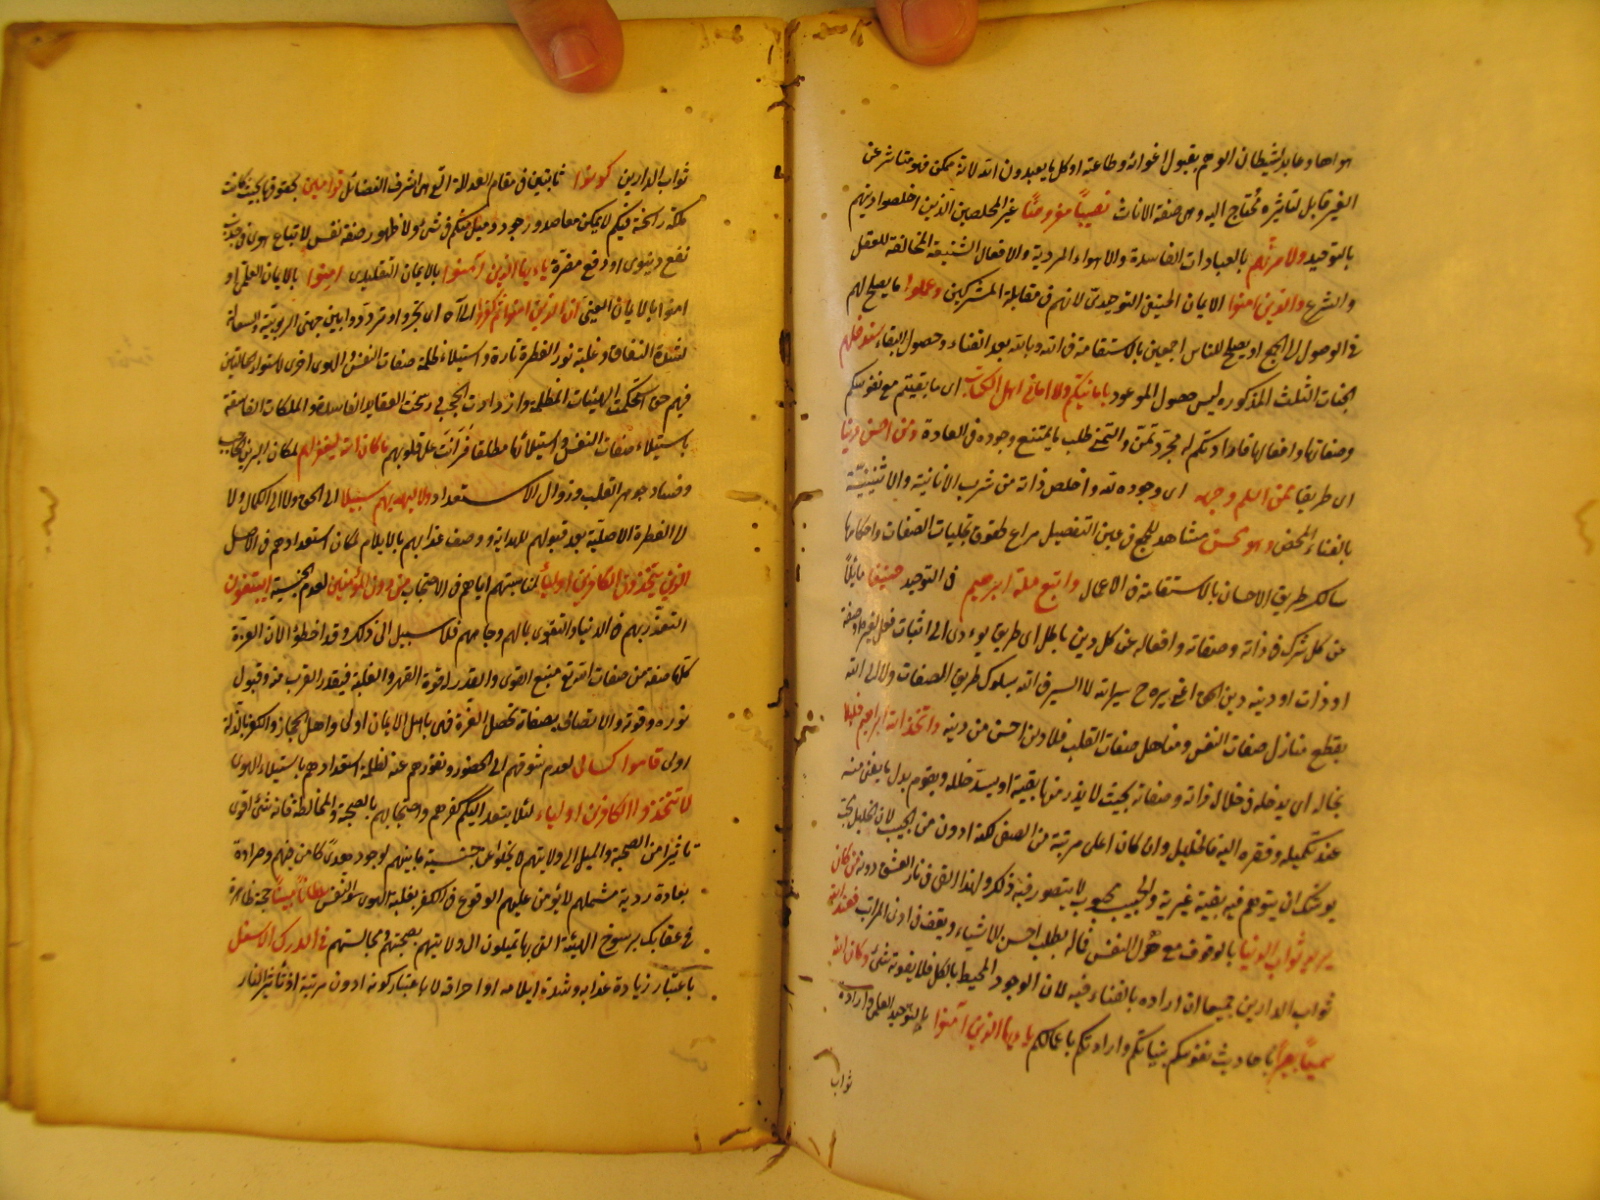 هواها وعابد لشيطان الوهم بقبول اغوائه وطاعته او كلما يعبدون من دون الله لانه ممكن فهو متاثر عن
الغير قابل لتاثيره محتاج اليه وهى صفة الاناث نصيباً مفروضاً غير المخلصين الذين اخلصوا دينهم
بالتوحيد ولامرنهم بالعبادات الفاسدة والاهواء المردية والافعال الشنيعة المخالفة للعقل
والشرع والذين امنوا الايمان الحقيقى التوحيدى لانهم فى مقابلة المشركين وعملوا ما يصلح لهم
فى الوصول الى الجمع او يصلح للناس اجمعين بالاستقامة فى الله وبالله بعد الفناء وحصول البقاء سندخلهم
الجنات الثلث المذكوره ليس حصول الموعود بامانيكم ولا امانى اهل الكتاب اى ما بقيتم مع نفوسكم
وصفاتها وافعالها فارادتكم له مجرد تمن والتمنى طلب ما يمتنع وجوده فى العادة ومن احسن دينا
اى طريقا ممن اسلم وجهه اى وجوده لله واخلص ذاته من شرب الانانية والاثنينية
بالفناء المحض وهو محسن مشاهد للجمع فى عين التفصيل مراع لحقوق تجليات الصفات واحكامها
سالك طريق الاحسان بالاستقامة فى الاعمال واتبع ملة ابراهيم فى التوحيد حنيفا مايلاً
عن كل شرك فى ذاته وصفاته وافعاله عن كل دين باطل اى طريق يودى الى اثبات فعل لغيره او صفة
او ذات اودينه دين الحق اعنى سيره ح سير الله لا السير فى الله بسلوك طريق الصفات ولا الى الله
بقطع منازل صفات النفس ومناهل صفات القلب فلا دين احسن من دينه واتخذ الله ابراهيم خليلا
يخاله اى يدخله فى خلال ذاته وصفاته بحيث لا يذر منها بقية او يسد خلله ويقوم بدل ما يفنى منه
عند تكميله وفقره اليه فالخليل وان كان اعلى مرتبة من الصفى لكنه ادون من الحبيب لان الخليل محب
يوشك ان يتوهم فيه بقية غيرية والحبيب محبوب لا يتصور فيه ذلك ولهذا القى فى نار العشق دونه من كان
يريد ثواب الدنيا بالوقوف مع هوى النفس فماله يطلب اخس الاشياء ويقف فى ادنى المراتب فعند الله
ثواب الدارين جميعا ان اراده بالفناء فيه لان الوجود المحيط بالكل فلا يفوته شئ وكان الله
سميعاً بصيراً باحاديث نفوسكم بنياتكم واراداتكم باعمالكم يا ايها الذين آمنوا بالتوحيد العلمى واراده
ثواب
ثواب الدارين كونوا ثابتين فى مقام العدالة التى هى اشرف الفضائل قوامين بحقوقها بحيث كانت
ملكة راسخة فيكم لا يمكن معها صدور جور وميل منكم فى شئ ولا ظهور صفة نفس لاتباع هوى فى جذب
نفع دنيوى او دفع مضرة يا ايها الذين آمنوا بالايمان التقليدى امنوا بالايمان العلمى او
امنوا بالايمان العينى ان الذين امنوا ثم كفروا الى آه اى تحيروا وترددوا بين جهتى الربوبية والسفلة
لشدة النفاق وغلبة نور الفطرة تارة واستيلاء ظلمة صفات النفس والهوى اخرى لاستواء الحالتين
فيهم حتى استحكمت الهيئات المظلمة وازدادت الحجب ورسخت العقايد الفاسدة والملكات الفاسقة
باستيلاء صفات النفس واستيلائها مطلقا فرانت على قلوبهم ما كان الله ليغفر لهم لمكان الرين الحاجب
وفساد جوهر القلب وزوال الاستعداد ولا ليهديهم سبيلا الى الحق ولا الى الكمال ولا
الى الفطرة الاصلية بعد قبولهم للهداية ووصف عذابهم بالايلام لمكان استعدادهم فى الاصل
الذين يتخذون الكافرين اولياء لمناسبتهم اياهم فى الاحتجاب من دون المؤمنين لعدم الجنسية ايبتغون
التعزز بهم فى الدنيا والتقوى بمالهم وجاههم فلا سبيل الى ذلك وقد اخطؤا لان العزة
كلها صفة من صفات الله تع منبع القوى والقدر له قوة القهر والغلبة فبقدر القرب منه وقبول
نوره وقوته والاتصاف بصفاته تحصل العزة فهى باهل الايمان اولى واهل الحجاز والكفر بالذلة
اولى قاموا كسالى لعدم شوقهم الى الحضور ونفورهم عنه لظلمة استعدادهم باستيلاء الهوى
لا تتخذوا الكافرين اولياء لئلا يتعد اليكم كفرهم واحتجابهم بالصحبة والمخالطة فانه شئ اقوى
تاثيراً من الصحبة والميل الى ولايتهم لا يخلوا عن جنسية ما بينهم لوجود هوى كامن فيهم وضراوة
بعادة ردية تشملهم لا يؤمن عليهم الوقوع فى الكفر بغلبة الهوى والنفس سلطاناً مبيناً حجة ظاهرة
فى عقابكم برسوخ الهيئة التى بها تميلون الى ولايتهم بصحبتهم ومجالستهم فى الدرك الاسفل
باعتبار زيادة عذابه وشدة ايلامه او احراقه لا باعتبار كونه ادون مرتبة اذ تاثير النار